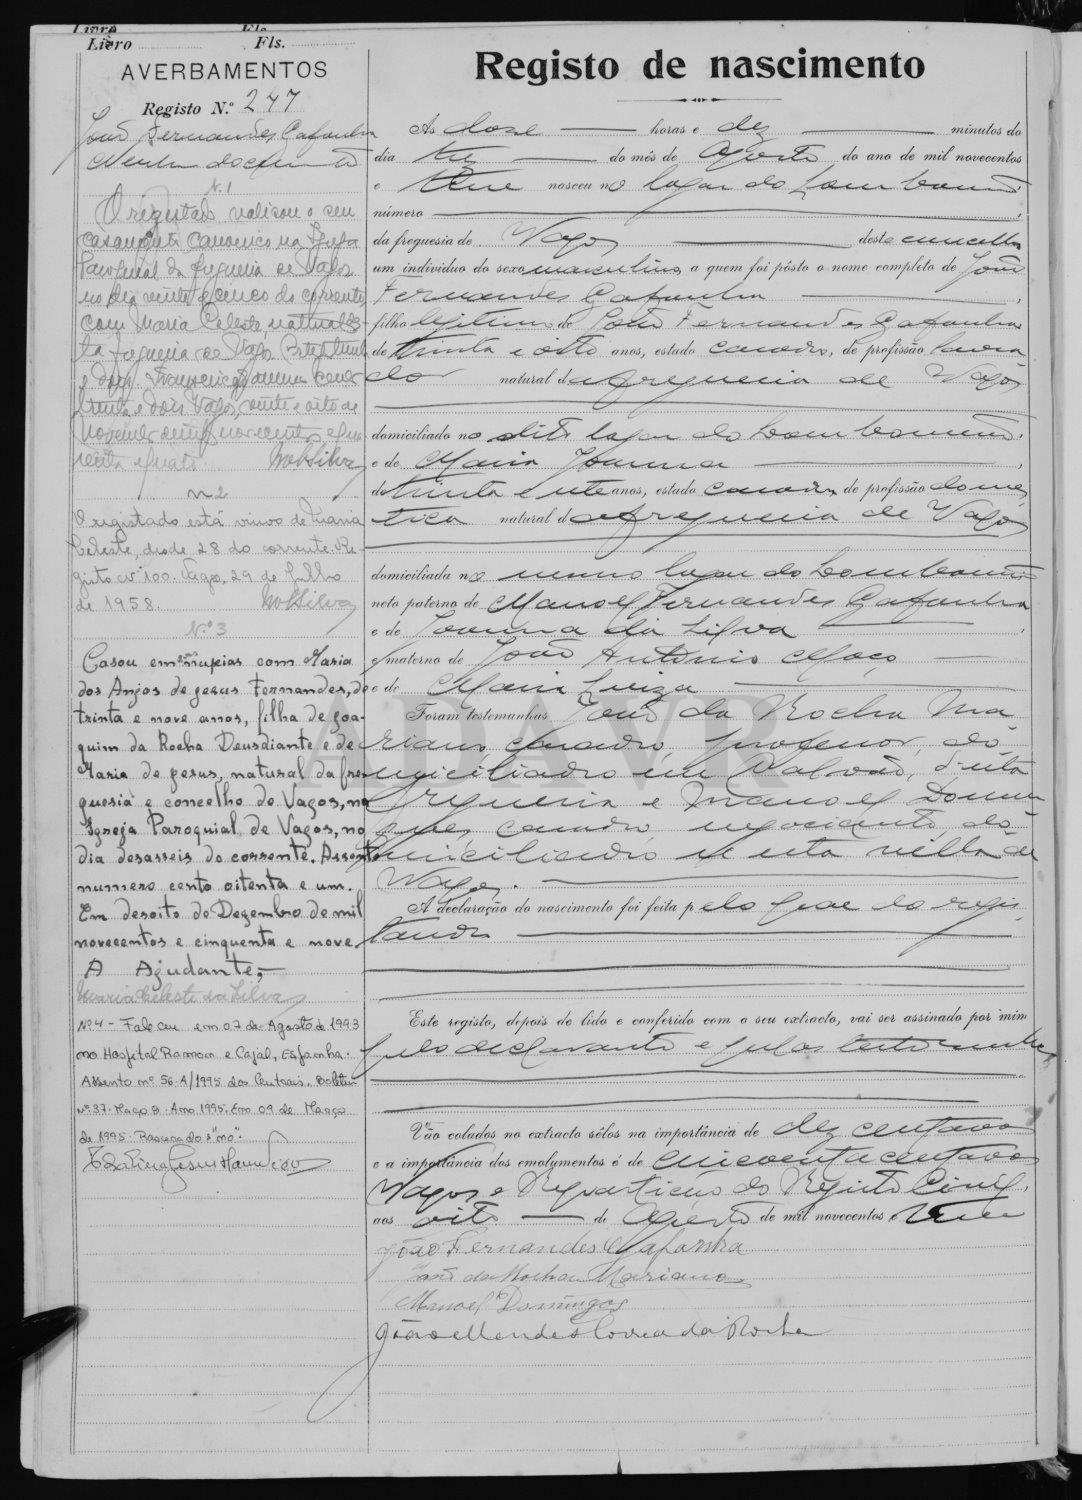 Livro Fls.
AVERBAMENTOS
Registo N.º 247
João Fernandes Gafanha
N. 1
O registado realizou o seu
casamento canonico na Igreja
Paroquial da freguesia de Vagos
no dia vinte e cinco do corrente
com Maria Celeste natural des-
ta freguesia de Vagos
trinta e dois Vagos, vinte e oito de
Novembro de mil novecentos e qua
renta e quatro. MoSSilva
n 2
O registado está viuvo de Maria
Celeste, desde 28 do corrente. Re-
gisto nº 100. Vagos, 29 de Julho
de 1958. MoSSilva
N.º 3
Casou em nupcias com Maria
dos Anjos de Jesus Fernandes, de
trinta e nove anos, filha de Joa-
quim da Rocha Deusdiante e de
Maria de Jesus, natural da fre
guesia e concelho de Vagos, na
Igreja Paroquial de Vagos, no
dia desasseis do corrente. Assento
numero cento oitenta e um.
Em desoito de Dezembro de mil
novecentos e cinquenta e nove.
A Ajudante,-
Maria Celeste da Silva
Nº4 - Faleceu em 07 de Agosto de 1993
no Hospital Ramon e Cajal, Espanha.
Assento nº 56-A/1995 dos Centrais. Boletim
nº 37. Maço 8. Ano 1995. Em 09 de Março
de 1995. Rasurado s "no".
Registo de nascimento
Ás doze horas e dez minutos do
dia trez do mês de Agosto do ano de mil novecentos
e treze nasceu no logar do Lombomeão
número
da freguesia de Vagos deste concelho
um individuo do sexo masculino, a quem foi pôsto o nome completo de João
Fernandes Gafanha
filho legitimo de João Fernandes Gafanha
de trinta e oito anos, estado casado, de profissão lavra
dor natural da freguesia de Vagos
domiciliado no dito logar do Lombomeão,
e de Maria Joanna
de trinta e sete anos, estado casada, de profissão domes
tica natural da freguesia de Vagos
domiciliada no mesmo logar do Lombomeão
neto paterno de Manoel Fernandes Gafanha
e de Joanna da Silva
e materno de João António Moço
e de Maria Luiza
Foram testemunhas João da Rocha Ma
riano, casado, professor, do
miciliado em Valvão, d'esta
freguesia e Manoel Domin
gues, casado, negociante, do
miciliado n'esta villa de
Vagos.
A declaração do nascimento foi feita pelo pae do regis
tando
Este registo, depois de lido e conferido com o seu extracto, vai ser assinado por mim
pelo declarante e pelas testemunhas
Vão colados no extracto sêlos na importância de dez centavos
e a importância dos emolumentos é de cincoenta centavos
Vagos e Repartição do Registo Civil,
aos oito de Agosto de mil novecentos e treze
João Fernandes Gafanha
João da Rocha Mariano
Manoel Domingos
João Mendes Correa da Rocha
ADAVR